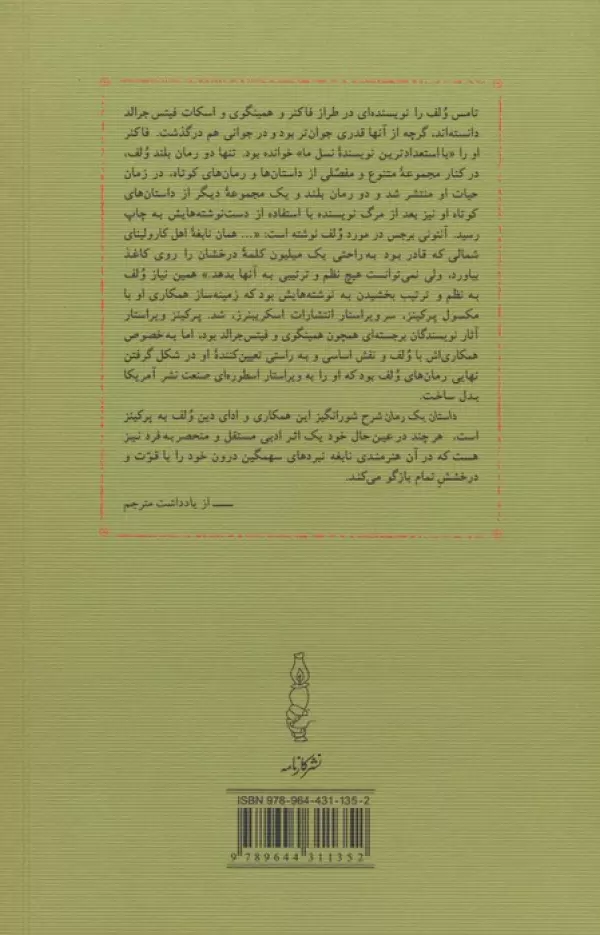 تامس وُلف را نویسنده‌ای در طراز فاکنر و همینگوی و اسکات فیتس جرالد
دانسته‌اند، گرچه از آنها قدری جوان‌تر بود و در جوانی هم درگذشت. فاکنر
او را «با استعدادترین نویسندهٔ نسل ما» خوانده بود. تنها دو رمان بلند وُلف،
در کنار مجموعهٔ متنوع و مفصّلی از داستان‌ها و رمان‌های کوتاه، در زمان
حیات او منتشر شد و دو رمان بلند و یک مجموعهٔ دیگر از داستان‌های
کوتاه او نیز بعد از مرگ نویسنده با استفاده از دست‌نوشته‌هایش به چاپ
رسید. آنتونی برجس در مورد وُلف نوشته است: «... همان نابغهٔ اهل کارولینای
شمالی که قادر بود به‌راحتی یک میلیون کلمهٔ درخشان را روی کاغذ
بیاورد، ولی نمی‌توانست هیچ نظم و ترتیبی به آنها بدهد.» همین نیاز وُلف
به نظم و ترتیب بخشیدن به نوشته‌هایش بود که زمینه‌ساز همکاری او با
مکسول پرکینز، سر ویراستار انتشارات اسکریبنرز، شد. پرکینز ویراستار
آثار نویسندگان برجسته‌ای همچون همینگوی و فیتس‌جرالد بود، اما به‌خصوص
همکاری‌اش با وُلف و نقش اساسی و به راستی تعیین‌کنندهٔ او در شکل گرفتن
نهایی رمان‌های وُلف بود که او را به ویراستار اسطوره‌ای صنعت نشر آمریکا
بدل ساخت.
داستان یک رمان شرح شورانگیز این همکاری و ادای دین وُلف به پرکینز
است. هر چند در عین حال خود یک اثر ادبی مستقل و منحصر به فرد نیز
هست که در آن هنرمندی نابغه نبردهای سهمگین درون خود را با قوّت و
درخشش تمام بازگو می‌کند.
ــــــ از یادداشت مترجم
نشر کارنامه
ISBN 978-964-431-135-2
9 789644 311352